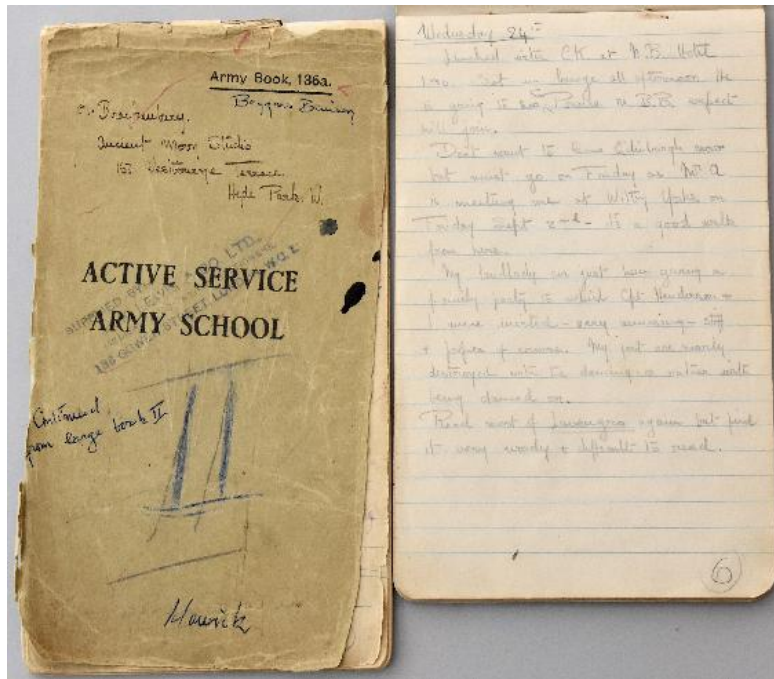 Army Book, 136a.
Brackenbury.
Studio
Terrace
Hyde Park. W.
ACTIVE SERVICE
ARMY SCHOOL
SUPPLIED BY
CO LTD.
GOWER STREET, LONDON, W.C.1.
Continued
from large book II
II
Howick
Wednesday 24th
Lunched with CK at N.B. Hotel
1.30. Sat in lounge all afternoon He
is going to see re B.B. expect
will join.
Don't want to leave Edinburgh now
but must go on Friday as Mr A
is meeting me at on
Friday Sept 2nd - Its a good walk
from here.
My landlady is just now giving a
party to which Cpt. Henderson &
I were invited - very amusing -
& of course. My feet are nearly
destroyed with the dancing or rather with
being danced on.
Read most of Lavengro again but find
it very wordy & difficult to read.
6